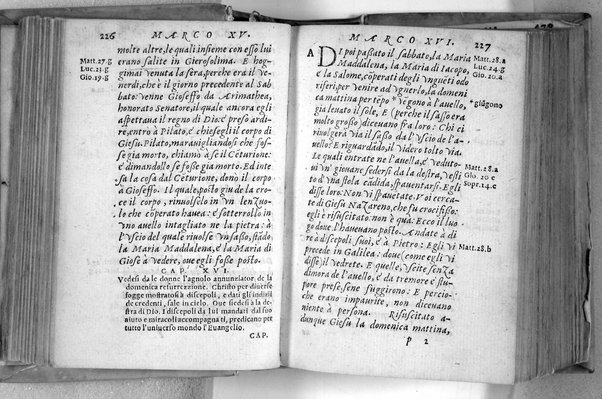 226 MARCO XV.
Matt. 27. g
Luc. 23. g
Gio. 19. g
molte altre, le quali insieme con esso lui
erano salite in Gierosolima. E hog-
gimai venuta la sera, perche era il ve-
nerdi, che è il giorno precedente al Sab-
bato: venne Gioseffo da Arimathea,
honorato Senatore, il quale ancora egli
aspettaua il regno di Dio: e preso ardi-
re, entrò à Pilato, e chiesegli il corpo di
Giesu. Pilato, marauigliandosi che fos-
se gia morto, chiamò à se il Cẽturione:
e dimandollo se fosse gia morto. Ed inte-
sa la cosa dal Cẽturione, donò il corpo
à Gioseffo. Il quale, posto giu de la cro-
ce il corpo, rinuolselo in vn lenzuo-
lo che cõperato hauea: e sotterrollo in
vno auello intagliato ne la pietra: à
l'vscio del quale riuolse vn sasso, stãdo
la Maria Maddalena, e la Maria di
Giosè à vedere, oue egli fosse posto.
CAP. XVI.
Vedesi da le donne l'agnolo annunziator de la
domenica resurrezione. Christo per diuerse
fogge mostratosi à discepoli, e dati gli indizii
de credenti, sale in cielo. Oue siedesi à la de-
stra di Dio. I discepoli da lui mandati dal suo
aiuto e miracoli accompagnati, predicano per
tutto l'uniuerso mondo l'Euangelio.
CAP.
MARCO XVI. 227
A
Matt. 28. a
Luc. 24. g
Gio. 20. a
DI poi passato il sabbato, la Maria
Maddalena, la Maria di Iacopo,
e la Salome, cõperati degli vngueti odo
riferi, per venire ad vgnerlo, la domeni
ca mattina per tẽpo * vegono à l'auello,
*giũgono
gia leuato il sole, E (perche il sasso era
molto grosso) diceuano fra loro: Chi ci
riuolgerà via il sasso da l'vscio de l'a-
uello? E riguardãdo, il videro tolto via.
Le quali entrate ne l'auello, e veduto-
Matt. 28. a
Gio. 20 c
Sopr. 14. e
ui vn' giouane sedersi da la destra, vesti
to d'vna stola cãdida, spauentarsi. Egli
disse loro. Non vi spauẽtate. Voi cerca-
te di Giesu Nazareno, che fu crocifisso:
egli è risuscitato, non è quà: Ecco il luo
go doue l'haueuano posto. Andate à di
re à discepoli suoi, e à Pietro: Egli vi
Matt. 28. b
precede in Galilea: doue (come egli vi
disse) il vedrete. E quelle, vscite senza
dimora de l'auello, è da tremore e stu-
pore prese, sene fuggirono: E percio-
che erano impaurite, non diceuano
niente à persona. Risuscitato a-
dunque Giesu la domenica mattina,
P 2